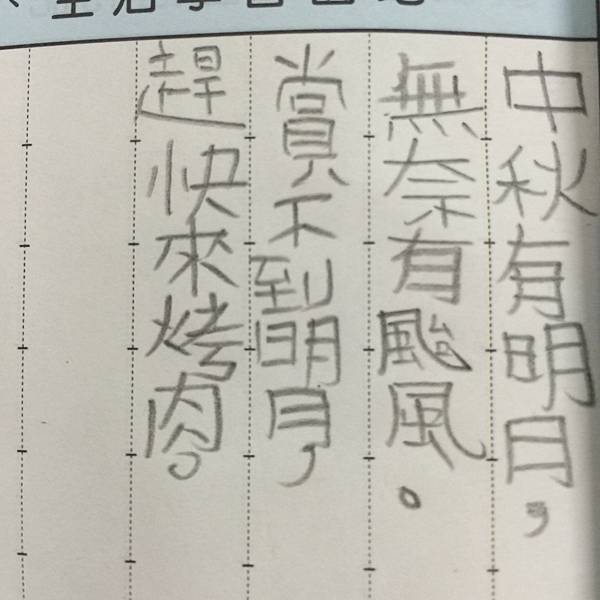 中秋有明月，
無奈有颱風。
賞不到明月，
趕快來烤肉。